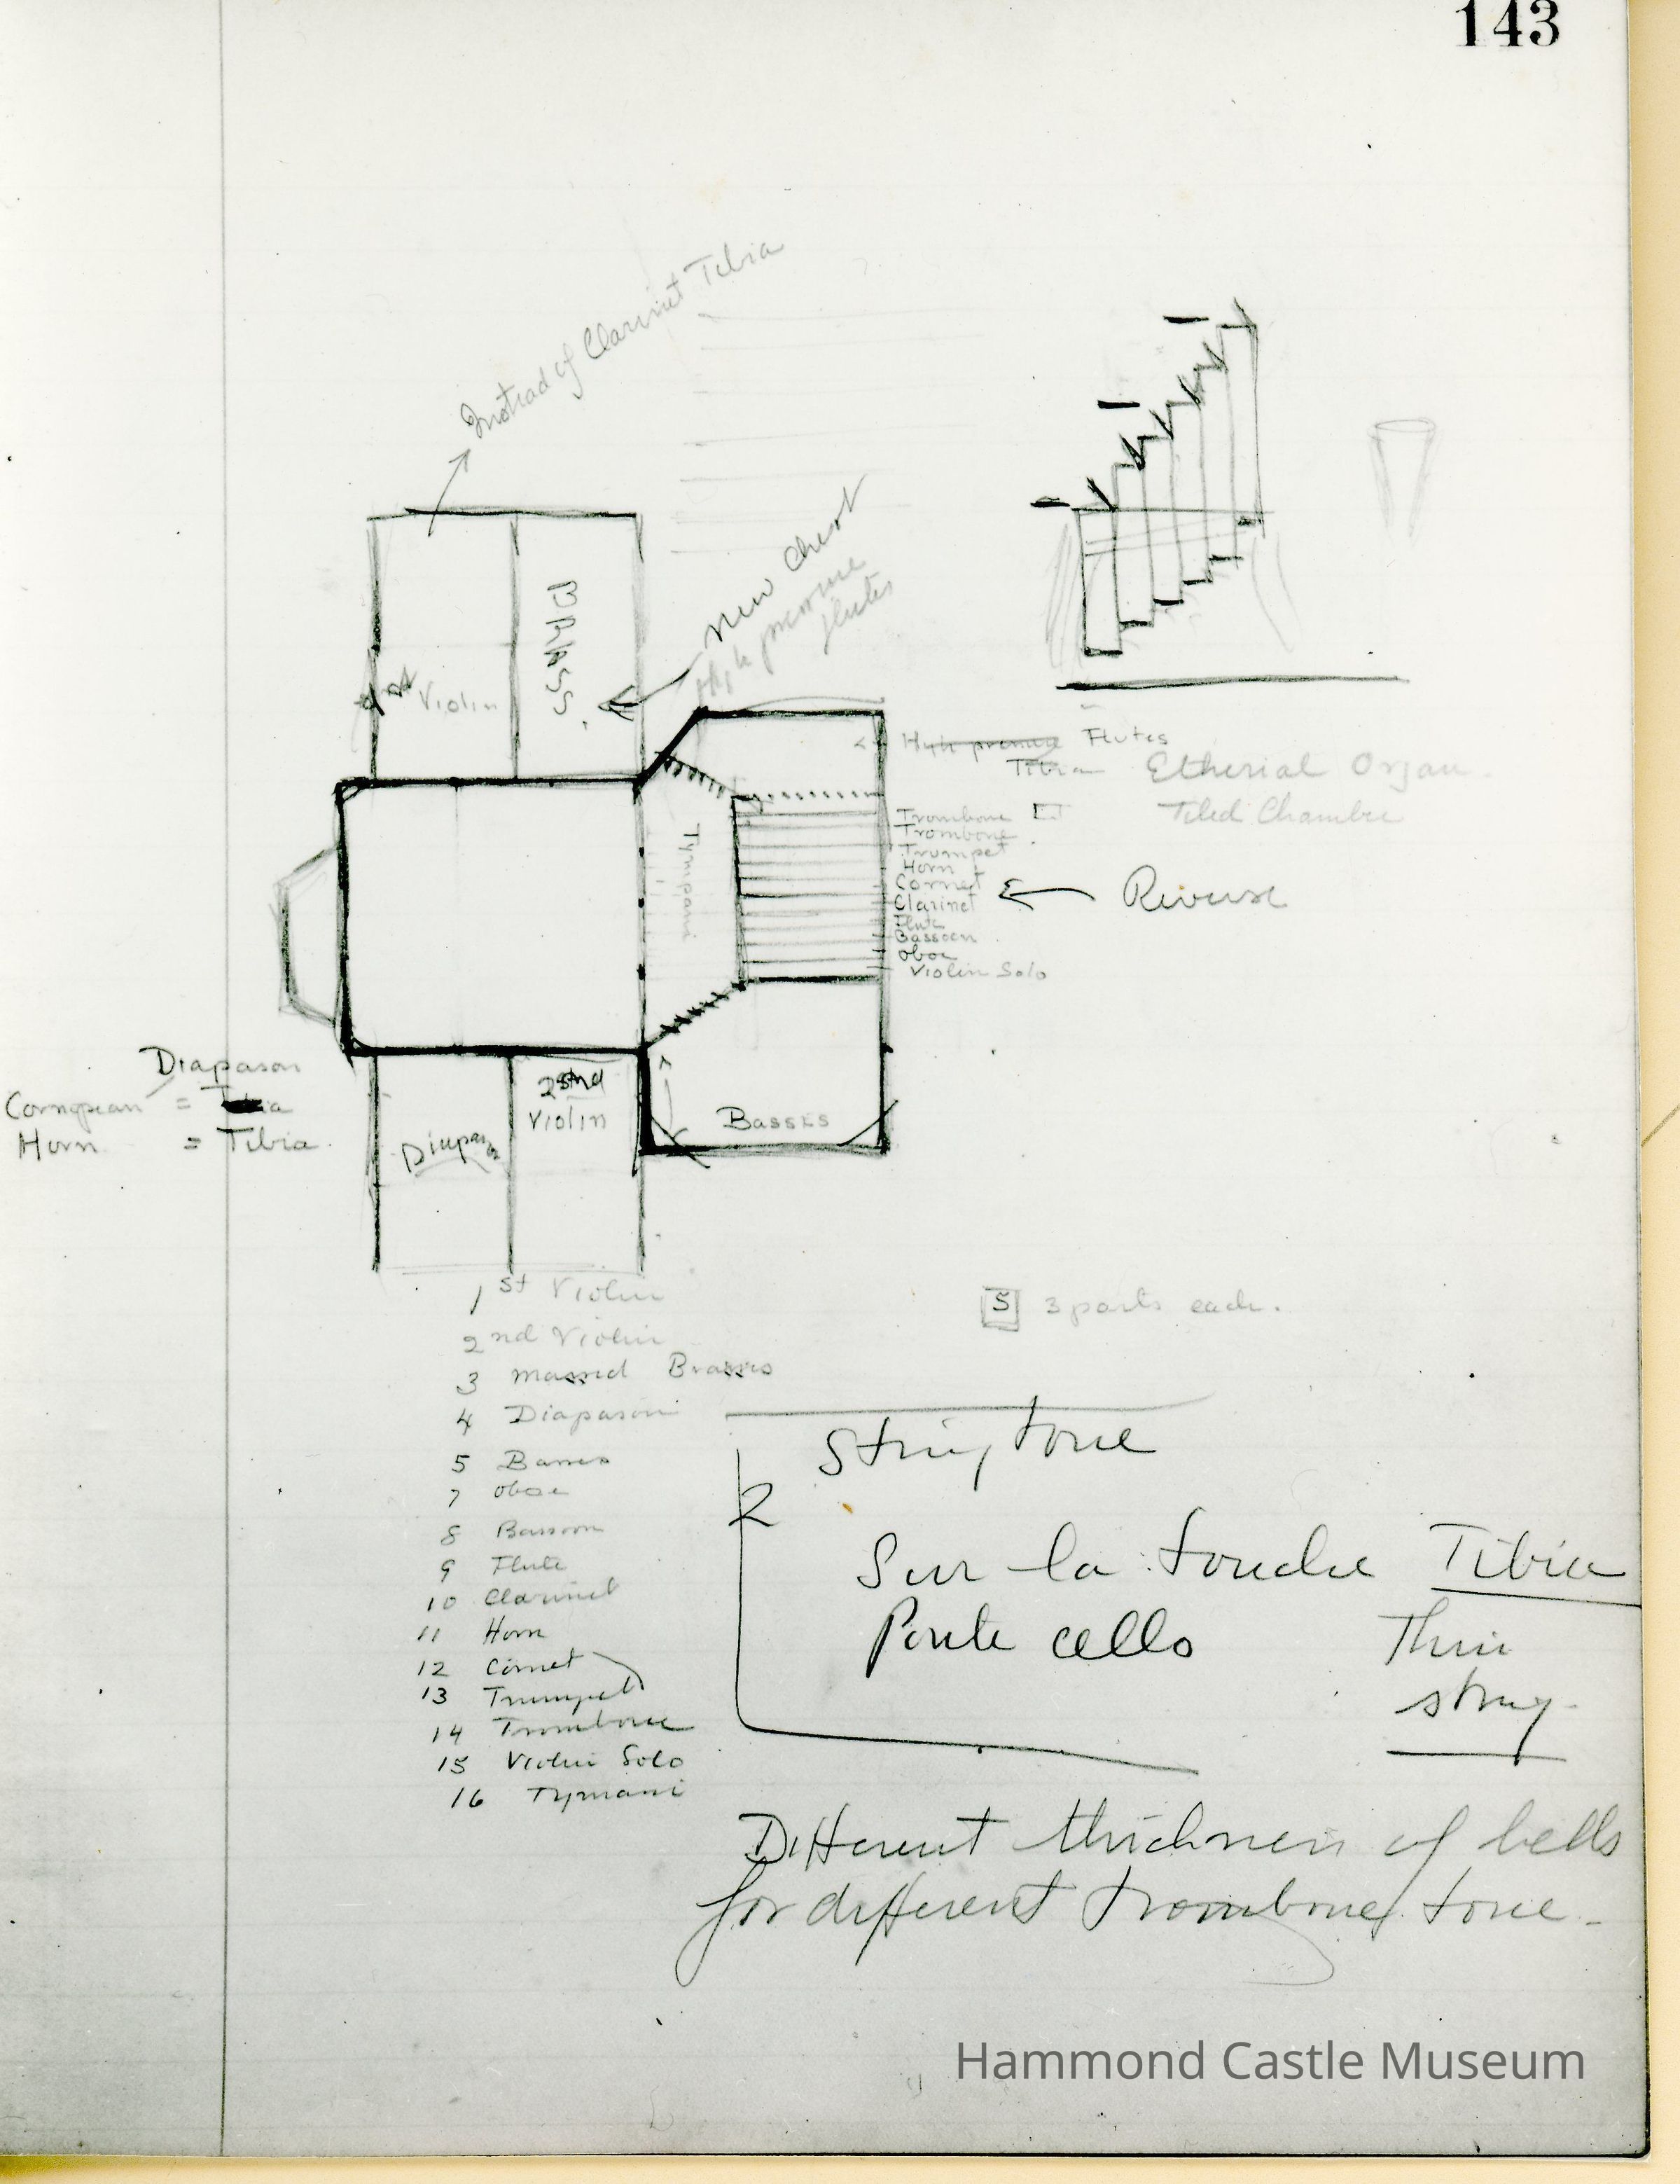 143
Instead of Clarinet Tibia
New Chest
High pressure
flutes
BRASS.
1st Violin
High pressure Flutes
Tibia Etherial Organ
Tiled Chambre
Trombone
Trombone
Trumpet
Horn
Cornet
Clarinet
Flute
Bassoon
oboe
Violin Solo
Reverse
Tympani
Diapason
Cornopean = Tibia
Horn = Tibia
2nd
Violin
Diapason
Basses
1st Violin
2nd Violin
3 Massed Brasses
4 Diapason
5 Basses
7 oboe
8 Bassoon
9 Flute
10 Clarinet
11 Horn
12 Cornet
13 Trumpet
14 Trombone
15 Violin Solo
16 Tymani
5 3 parts each.
String tone
2
Sur la touche Tibia
Ponte cello Thin
string
Different thickness of bells
for different trombone tone.
Hammond Castle Museum